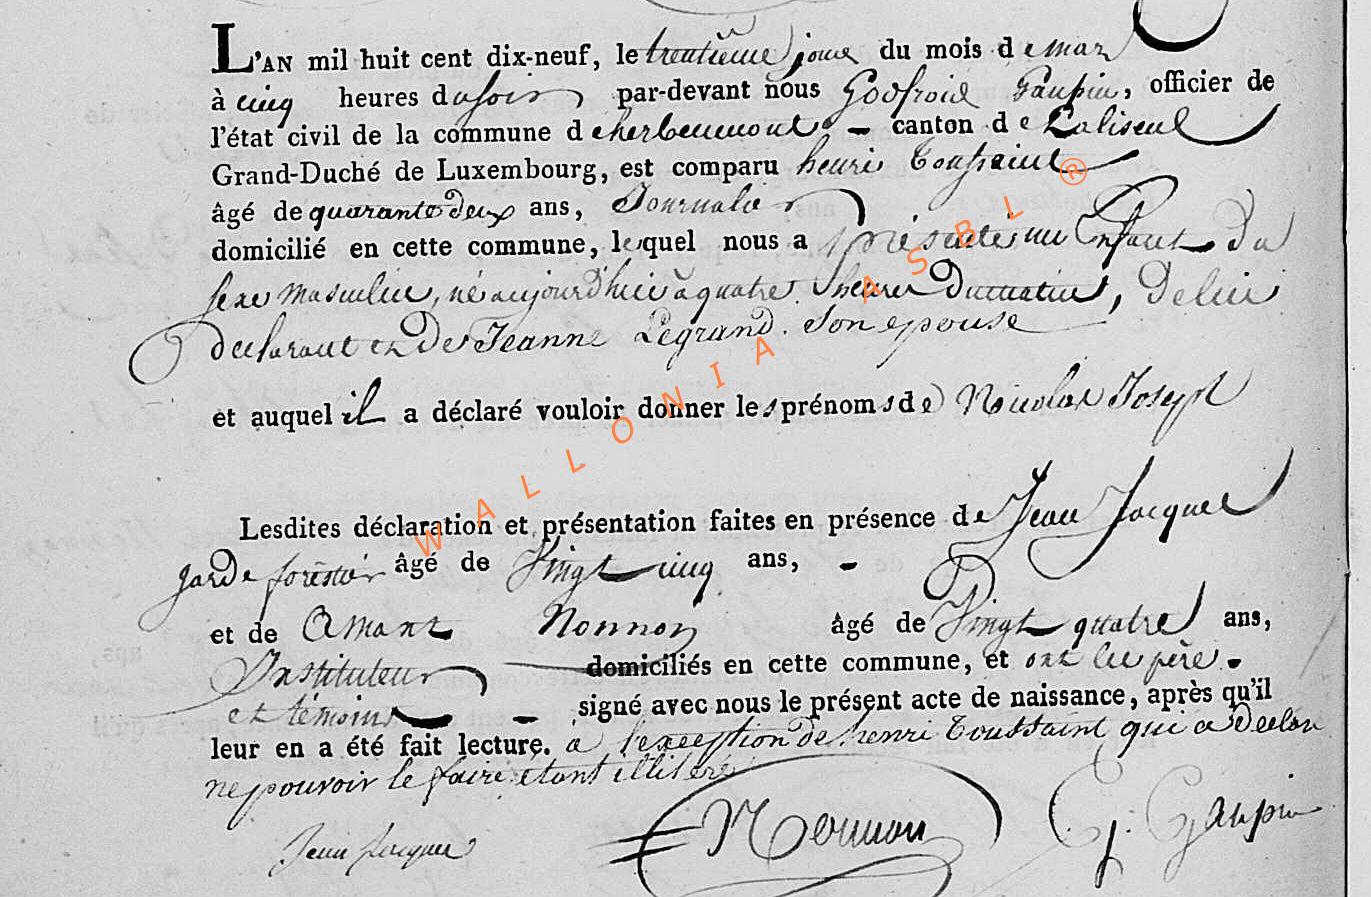 L'AN mil huit cent dix-neuf, le trentième jour du mois de mars
à cinq heures du soir par-devant nous Godfroid Gaupin, officier de
l'état civil de la commune d'herbeumont canton de Paliseul
Grand-Duché de Luxembourg, est comparu henri Toussaint
âgé de quarante deux ans, Journalier
domicilié en cette commune, lequel nous a présenté un Enfant Du
sexe masculin, né aujourd'hui à quatre heures Du matin, De lui
declarant et De Jeanne Legrand Son epouse
et auquel il a déclaré vouloir donner les prénoms de Nicolas Joseph
Lesdites déclaration et présentation faites en présence de Jean Jacques
garde forestier âgé de Vingt cinq ans,
et de Amant Nonnon âgé de Vingt quatre ans,
Instituteur domiciliés en cette commune, et ont les père
et témoins signé avec nous le présent acte de naissance, après qu'il
leur en a été fait lecture. a l'exception de henri Toussaint qui a Declaré
ne pouvoir le faire étant illitéré
Jean Jacques Nonnon G. Gaupin
WALLONIA ASBL ®